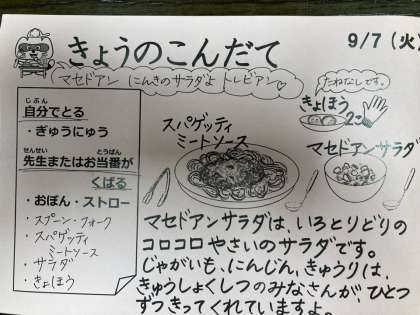 きょうのこんだて
9/7(火)
マセドアン にんきのサラダよ トレビアン♡
じぶん
自分でとる
・ぎゅうにゅう
せんせい とうばん
先生またはお当番が
くばる
・おぼん・ストロー
・スプーン・フォーク
・スパゲッティ
ミートソース
・サラダ
・きょほう
スパゲッティ
ミートソース
たねなしです。
きょほう
2こ
マセドアンサラダ
マセドアンサラダは、いろとりどりの
コロコロやさいのサラダです。
じゃがいも、にんじん、きゅうりは、
きゅうしょくしつのみなさんが、ひとつ
ずつきってくれていますよ。